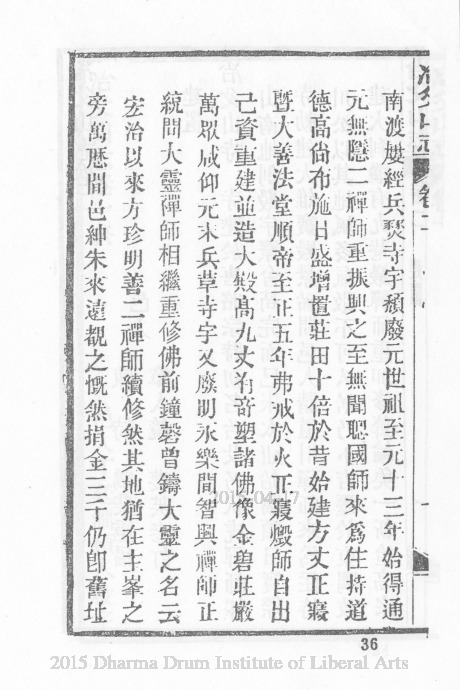 南渡屢經兵燹寺宇頽廢元世祖至元十三年始得通
元無隱二禪師重振興之至無聞聰國師來爲住持道
德高尙布施日盛增置莊田十倍於昔始建方丈正寢
暨大善法堂順帝至正五年弗戒於火正寢燬師自出
己資重建並造大殿高九丈有奇塑諸佛像金碧莊嚴
萬眾咸仰元末兵草寺宇又廢明永樂間智興禪師正
統問大靈禪師相繼重修佛前鐘磬曾鑄大靈之名云
宏治以來方珍明善二禪師續修然其地猶在主峯之
旁萬歷間邑紳朱來遠覩之慨然捐金三千仍卽舊址
36
2015 Dharma Drum Institute of Liberal Arts